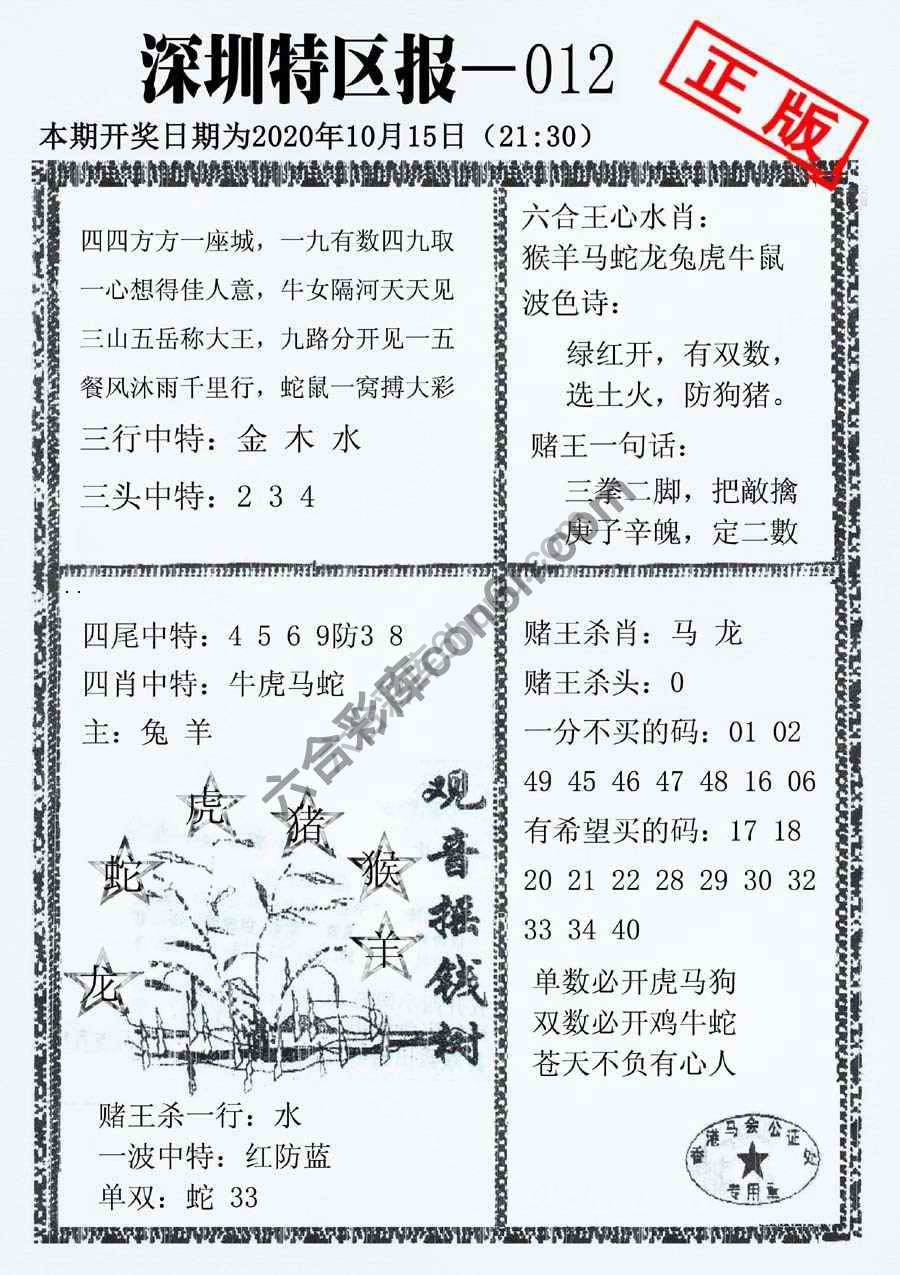 深圳特区报—012
正版
本期开奖日期为2020年10月15日（21:30）
四四方方一座城，一九有数四九取
一心想得佳人意，牛女隔河天天见
三山五岳称大王，九路分开见一五
餐风沐雨千里行，蛇鼠一窝搏大彩
三行中特：金 木 水
三头中特：2 3 4
六合王心水肖：
猴羊马蛇龙兔虎牛鼠
波色诗：
绿红开，有双数，
选土火，防狗猪。
赌王一句话：
三拳二脚，把敵擒
庚子辛魄，定二數
四尾中特：4 5 6 9防3 8
四肖中特：牛虎马蛇
主：兔 羊
虎
猪
蛇
猴
羊
龙
观音摇钱树
赌王杀一行：水
一波中特：红防蓝
单双：蛇 33
赌王杀肖：马 龙
赌王杀头：0
一分不买的码：01 02
49 45 46 47 48 16 06
有希望买的码：17 18
20 21 22 28 29 30 32
33 34 40
单数必开虎马狗
双数必开鸡牛蛇
苍天不负有心人
香港马会公证处
专用章
六合彩库con6h.com